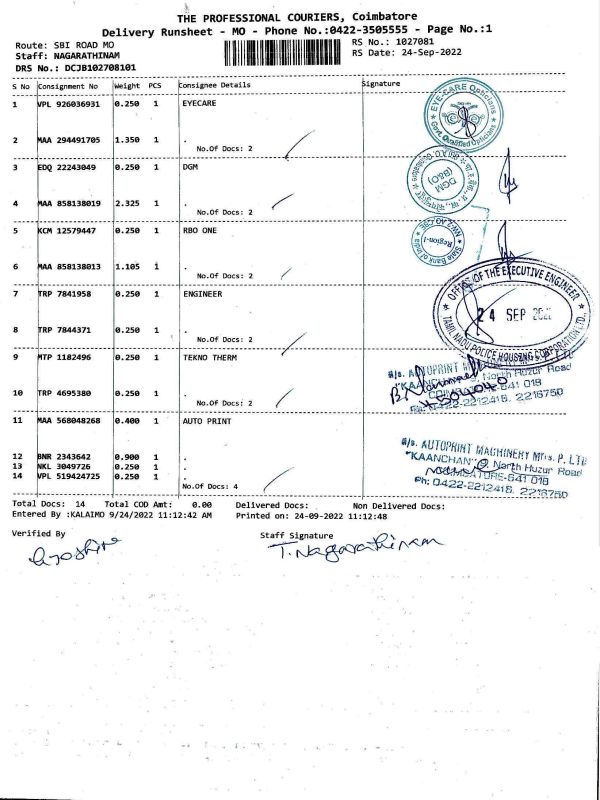 THE PROFESSIONAL COURIERS, Coimbatore
Delivery Runsheet - MO - Phone No.:0422-3505555 - Page No.:1
Route: SBI ROAD MO
RS No.: 1027081
Staff: NAGARATHINAM
RS Date: 24-Sep-2022
DRS No.: DCJB102708101
S No Consignment No Weight PCS Consignee Details Signature
1 VPL 926036931 0.250 1 EYECARE
EYE-CARE Opticians
Govt. Qualified Opticians
2 MAA 294491705 1.350 1 .
No.Of Docs: 2
3 EDQ 22243049 0.250 1 DGM
DGM
(B&O)
4 MAA 858138019 2.325 1 .
No.Of Docs: 2
5 KCM 12579447 0.250 1 RBO ONE
Region-I
State Bank of India
6 MAA 858138013 1.105 1 .
No.Of Docs: 2
7 TRP 7841958 0.250 1 ENGINEER
OFFICE OF THE EXECUTIVE ENGINEER
24 SEP
TAMIL NADU POLICE HOUSING CORPORATION LTD.,
8 TRP 7844371 0.250 1 .
No.Of Docs: 2
9 MTP 1182496 0.250 1 TEKNO THERM
M/s. AUTOPRINT
"KAANCHAN" 9, North Huzur Road
COIMBATORE-641 018
Ph: 0422-2212418, 2216750
10 TRP 4695380 0.250 1 .
No.Of Docs: 2
11 MAA 568048268 0.400 1 AUTO PRINT
M/s. AUTOPRINT MACHINERY Mfrs. P. LTD
"KAANCHAN" 9, North Huzur Road
COIMBATORE-641 018
Ph: 0422-2212418, 2216750
12 BNR 2343642 0.900 1 .
13 NKL 3049726 0.250 1 .
14 VPL 519424725 0.250 1 .
No.Of Docs: 4
Total Docs: 14 Total COD Amt: 0.00 Delivered Docs: Non Delivered Docs:
Entered By :KALAIMO 9/24/2022 11:12:42 AM Printed on: 24-09-2022 11:12:48
Verified By
Staff Signature
T. Nagarathinam